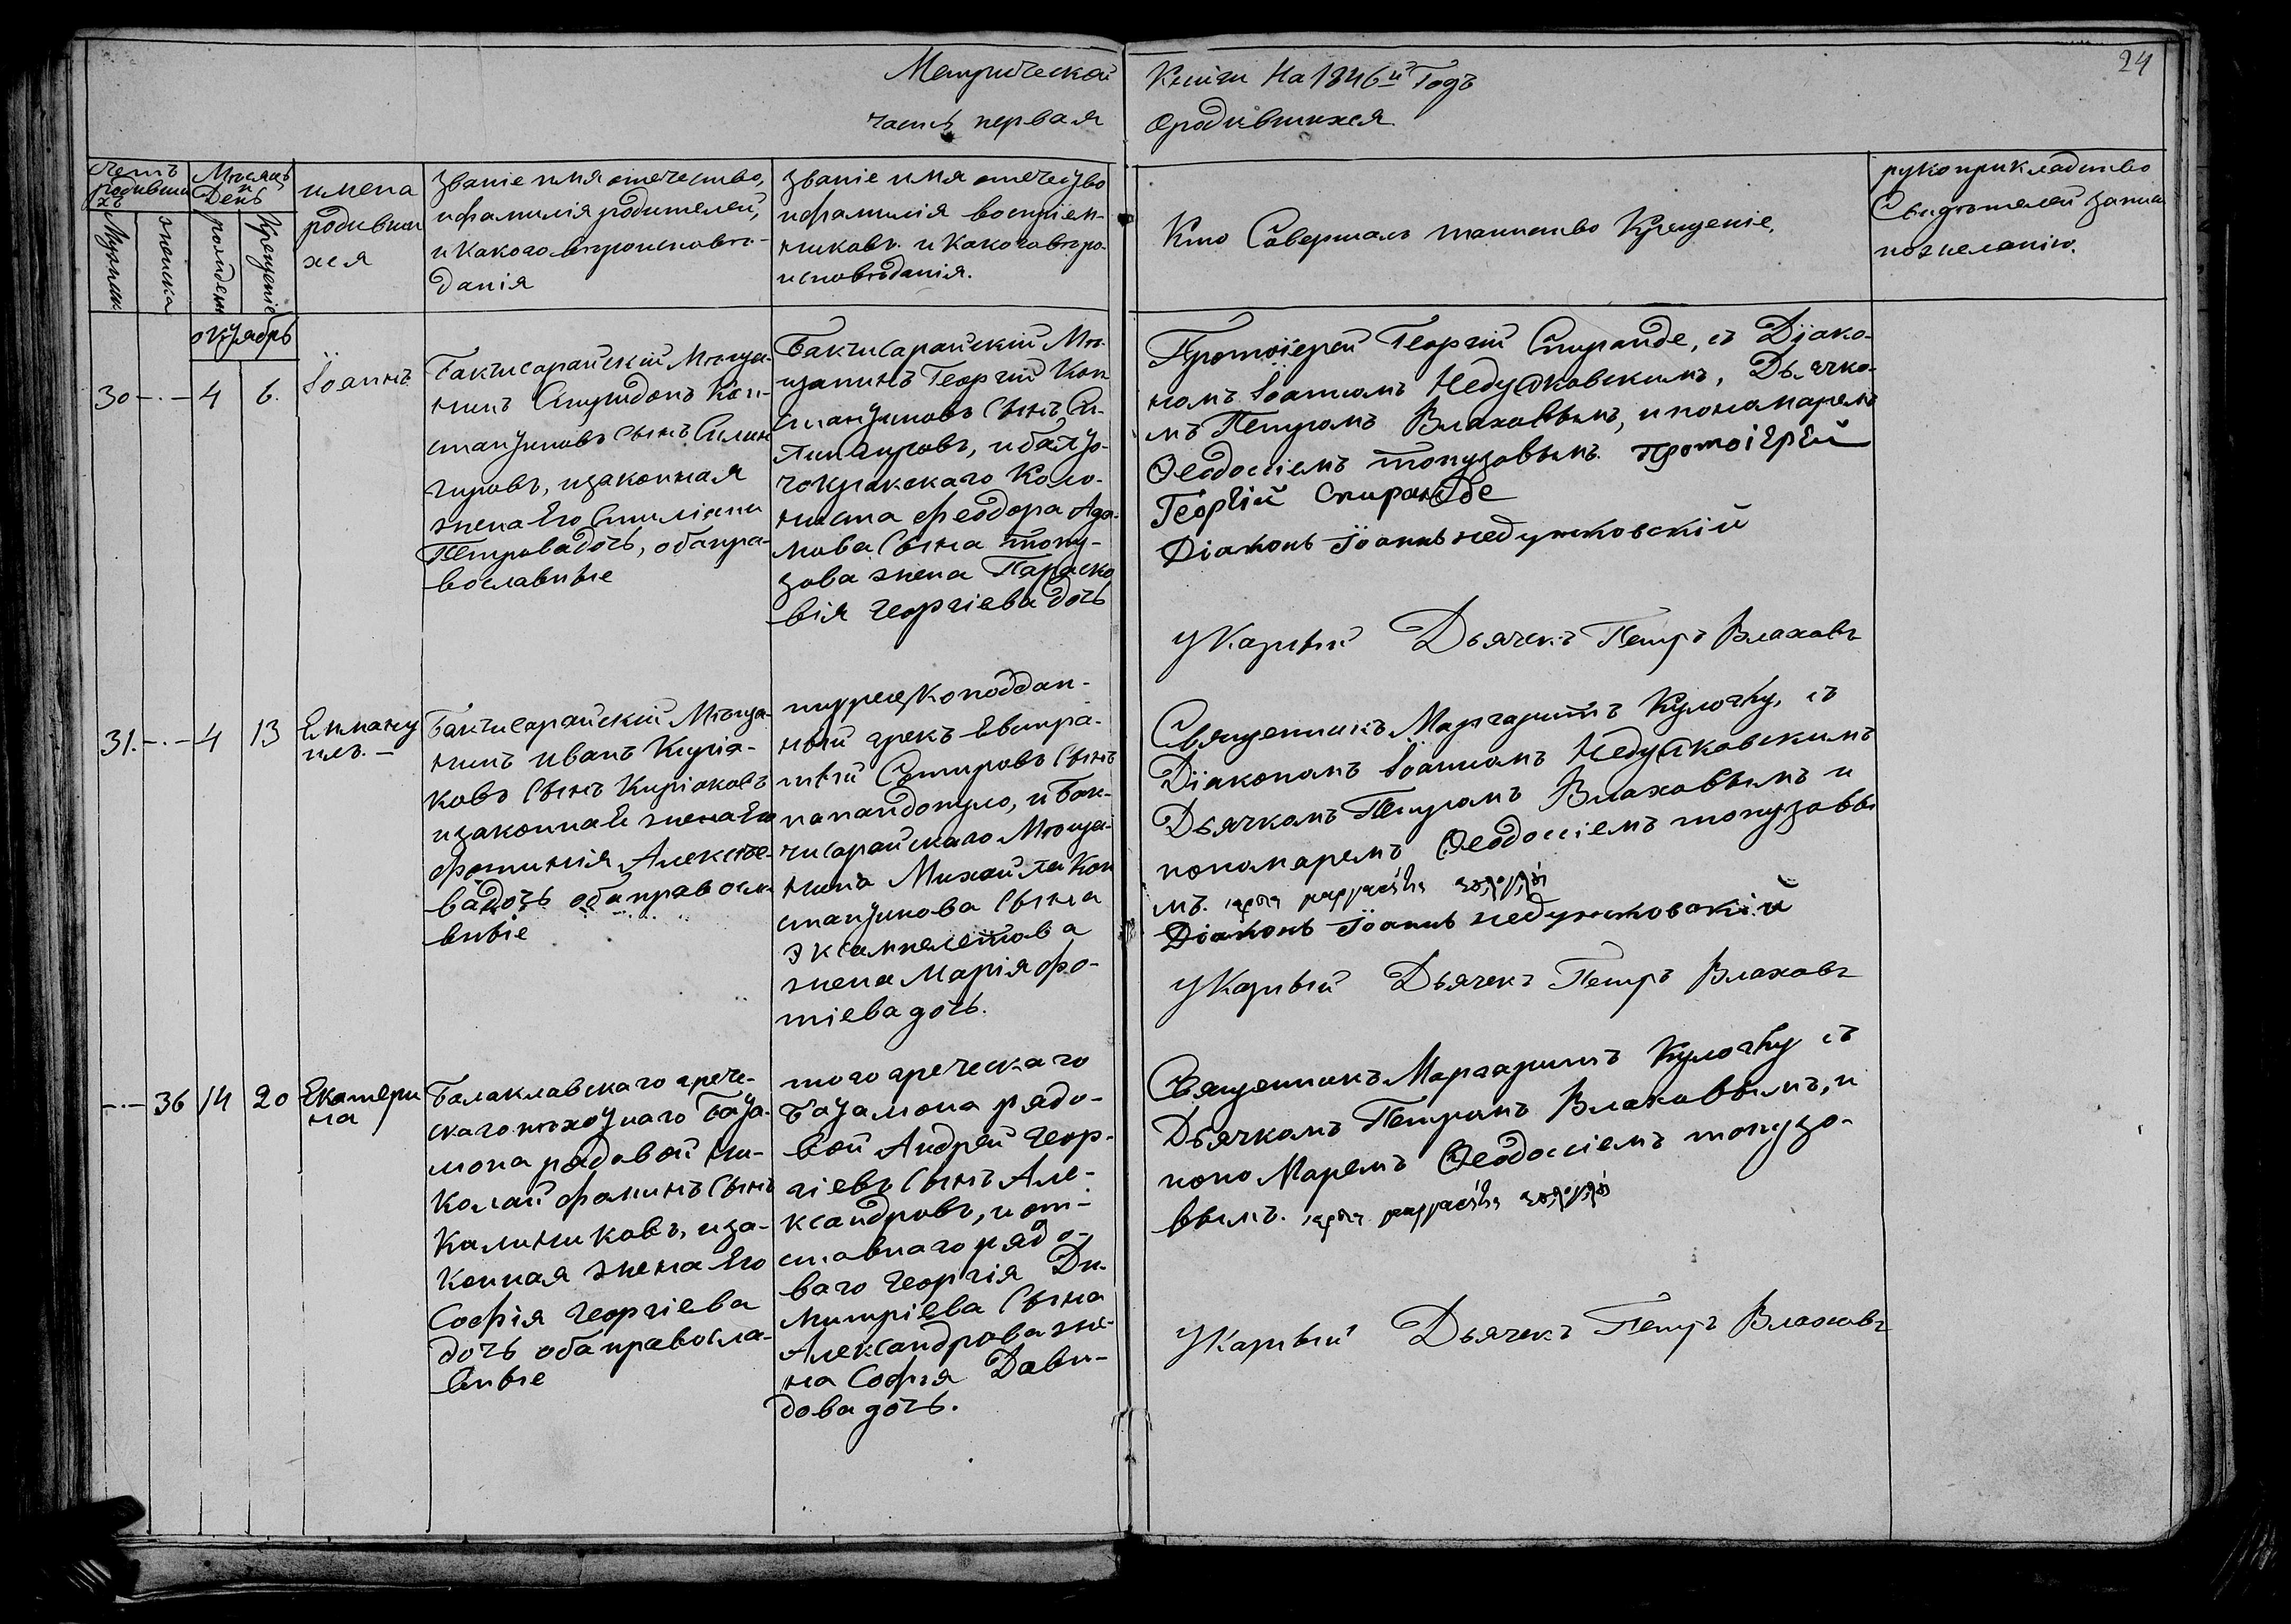 Метрической Книги На 1846й Годъ
часть первая ородившихся
24
счетъ родивши хъ
Мѣсяцъ и День
имена родивши хся
званіе имя отечество,
ифамилія родителей,
и Какого вѣроисповѣ-
данія
званіе имя отечество
ифамилія воспріем-
никовъ. и Какоговѣро-
исповѣданія.
Кто Совершалъ таинство Крещеніе,
рукоприкладство
Свидѣтелей записи
пожеланію.
Мужска
женска
рожденія
Крещеніе
октябрь
30 -.- 4 6.
Іоаннъ
Бакчисарайскій Мѣща-
нинъ Спиридонъ Кон-
стантиновъ Сынъ
изаконная
жена Его
Петровадочь, обапра-
вославные
Бакчисарайскій Мѣ-
щанинъ Георгій Кон
стантиновъ Сынъ
Коло-
ниста Феодора Ада-
мова Сына топу-
зова жена Параско
вія Георгіева дочь
Протоіерей Георгій Спиранде, съ Діяко-
номъ Іоанномъ Недужковскимъ, Дьячко-
мъ Петромъ Влаховымъ, ипономаремъ
Ѳеодосіемъ топузовымъ. Протоіерей
Георгій Спиранде
Діаконъ Іоаннъ недужковскій
Указный Дьячекъ Петръ Влаховъ
31. -.- 4 13
Еммануилъ. -
Бакчисарайскій Мѣща-
нинъ иванъ Кирія-
ковъ Сынъ Киріаковъ
изаконная жена Его
фотинія Алексѣе-
вадочь обаправосла
вные
турецкоподдан-
ный грекъ Евстра-
тій Сотировъ Сынъ
папандопуло, и Бак-
чисарайскаго Мѣща-
нина Михаила Кон
стантинова Сына
жена Марія фо-
тіева дочь.
Священникъ Маргаритъ Кулочку, съ
Діакономъ Іоанномъ Недужковскимъ
Дьячкомъ Петромъ Влаховымъ и
пономаремъ Ѳеодосіемъ топузовы
мъ.
Діаконъ Іоаннъ недужковскій
Указный Дьячекъ Петръ Влаховъ
-.- 36 14 20
Екатерина
Балаклавскаго грече-
скаго пѣхотнаго Бата-
лiона рядовой Ни-
колай фоминъ Сынъ
Калиниковъ, иза-
конная жена Его
Софія Георгіева
дочь обаправосла-
вные
того греческаго
Баталiона рядо-
вой Андрей Геор-
гіевъ Сынъ Але-
ксандровъ, и от-
ставнаго рядо-
ваго Георгія Ди-
митріева Сына
Александрова же-
на Софія Дави-
дова дочь.
Священникъ Маргаритъ Кулочку съ
Дьячкомъ Петромъ Влаховымъ, и
поно Маремъ Ѳеодосіемъ топузо-
вымъ.
Указный Дьячекъ Петръ Влаховъ